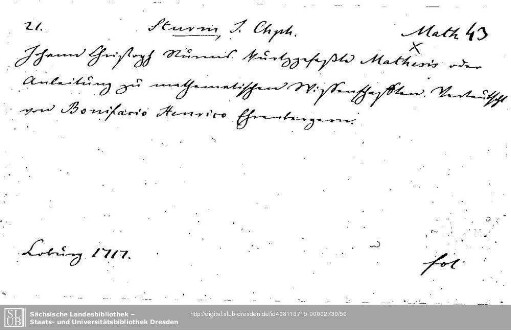 21. Sturm, J. Chph. Math 43
Johann Christoph Sturms kurtzgefaßte Mathesis oder
Anleitung zu mathematischen Wissenschafften. Verteutscht
von Bonifacio Henrico Ehrenbergern.
Coburg 1717. fol
SLUB
Sächsische Landesbibliothek –
Staats- und Universitätsbibliothek Dresden